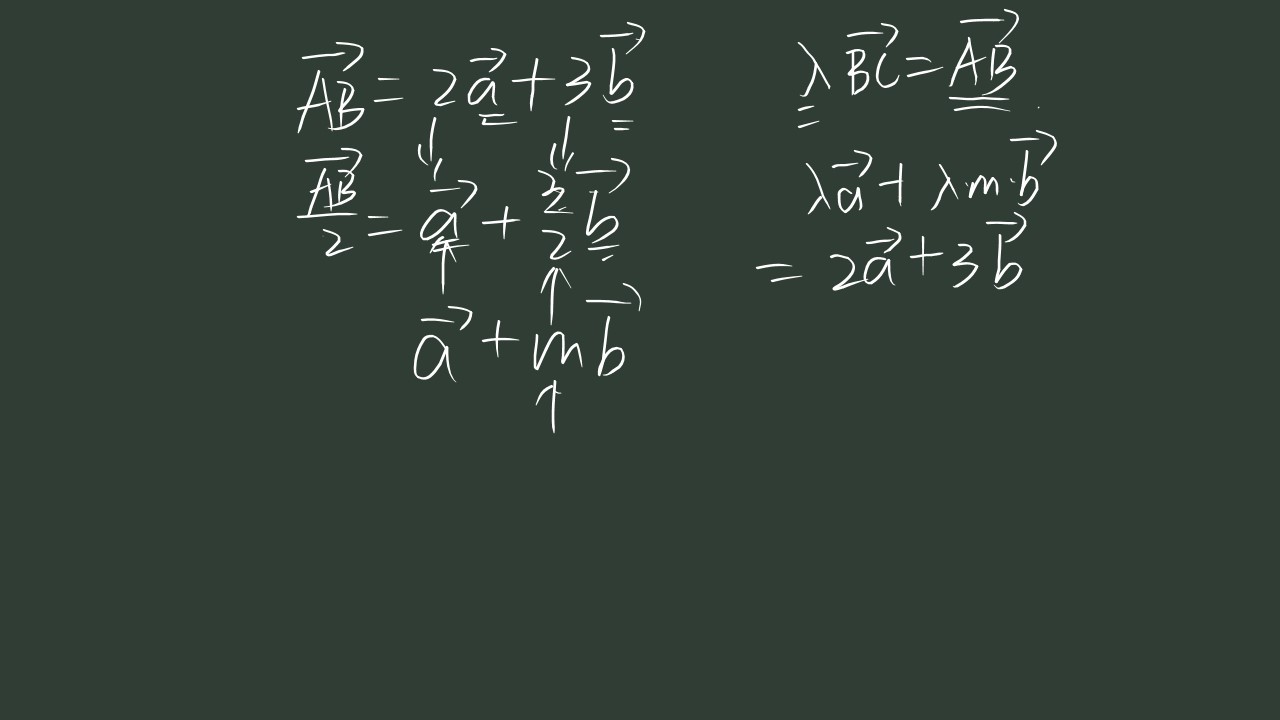 $\overrightarrow{AB} = 2\vec{a} + 3\vec{b}$
$\frac{\overrightarrow{AB}}{2} = \vec{a} + \frac{3}{2}\vec{b}$
$\vec{a} + m\vec{b}$
$\lambda\overrightarrow{BC} = \overrightarrow{AB}$
$\lambda\vec{a} + \lambda m \cdot \vec{b}$
$= 2\vec{a} + 3\vec{b}$